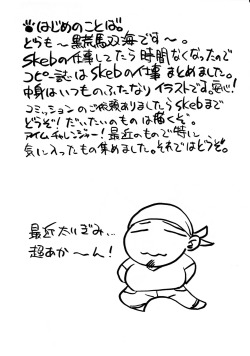 はじめのことば。
どうも〜黒荒馬双海です〜。
Skebの仕事してたら時間なくなったので
コピー誌はSkebの仕事まとめました。
中身はいつものふたなりイラストです。安心!
コミッションのご依頼ありましたらSkebまで
どうぞ!だいたいのものは描くぞ。
アイムチャレンジャー!最近のもので特に
気に入ったもの集めました。それではどうぞ。
最近太いぎみ…
超あか〜ん!